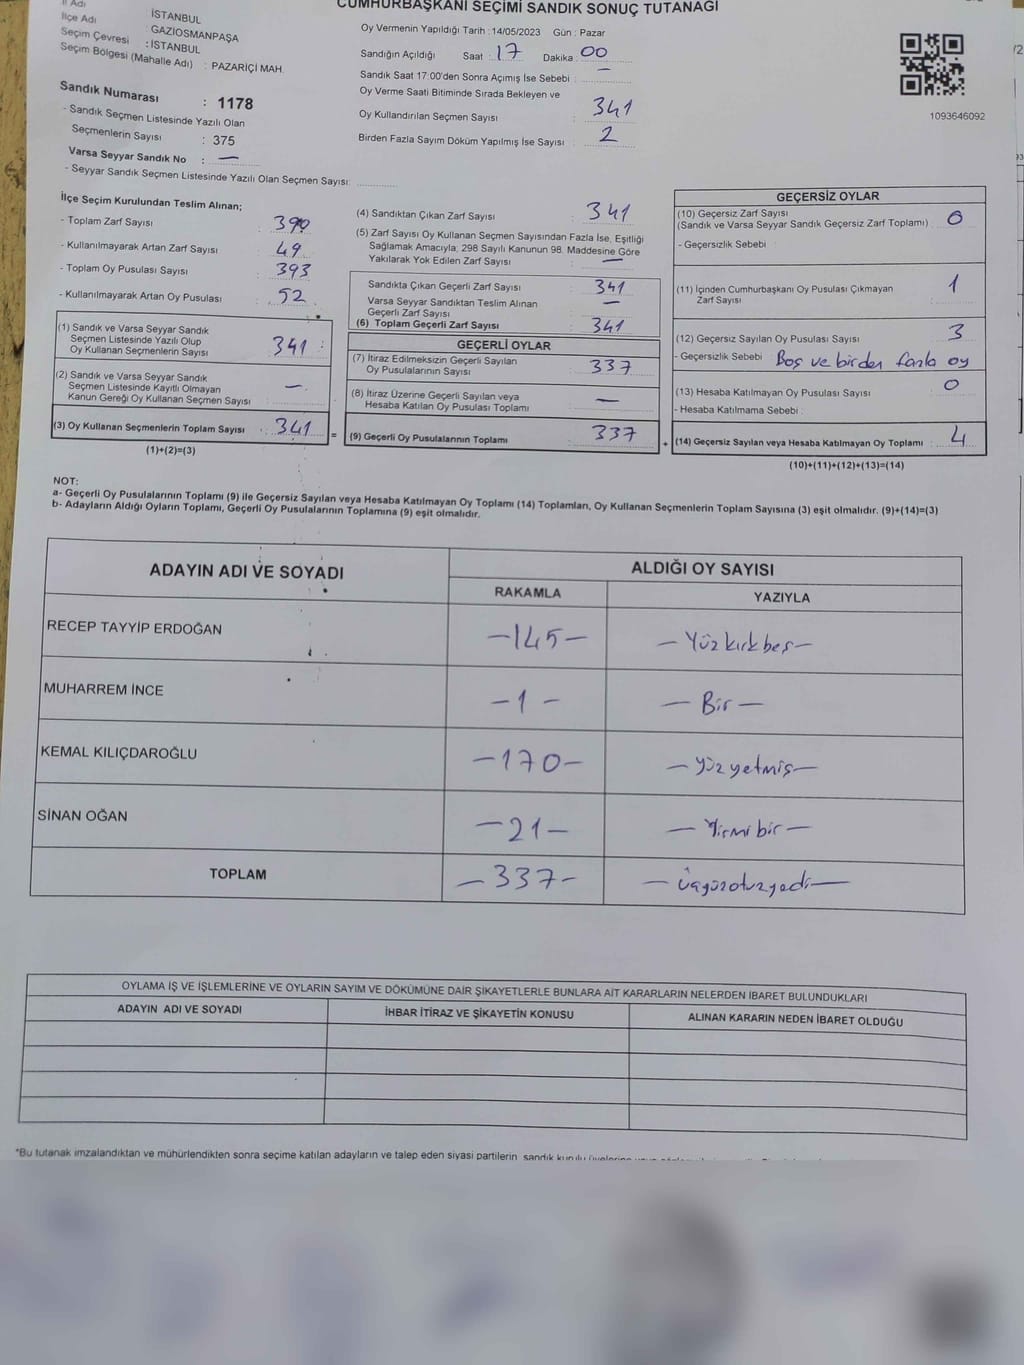 CUMHURBAŞKANI SEÇİMİ SANDIK SONUÇ TUTANAĞI
İl Adı İSTANBUL
İlçe Adı GAZİOSMANPAŞA
Seçim Çevresi : İSTANBUL
Seçim Bölgesi (Mahalle Adı) : PAZARİÇİ MAH.
Sandık Numarası : 1178
- Sandık Seçmen Listesinde Yazılı Olan
Seçmenlerin Sayısı : 375
Varsa Seyyar Sandık No : —
- Seyyar Sandık Seçmen Listesinde Yazılı Olan Seçmen Sayısı:
Oy Vermenin Yapıldığı Tarih : 14/05/2023 Gün : Pazar
Sandığın Açıldığı Saat 17 Dakika 00
Sandık Saat 17:00'den Sonra Açımış İse Sebebi : —
Oy Verme Saati Bitiminde Sırada Bekleyen ve
Oy Kullandırılan Seçmen Sayısı : 341
Birden Fazla Sayım Döküm Yapılmış İse Sayısı : 2
1093646092
İlçe Seçim Kurulundan Teslim Alınan;
- Toplam Zarf Sayısı : 390
- Kullanılmayarak Artan Zarf Sayısı : 49
- Toplam Oy Pusulası Sayısı : 393
- Kullanılmayarak Artan Oy Pusulası : 52
(1) Sandık ve Varsa Seyyar Sandık
Seçmen Listesinde Yazılı Olup
Oy Kullanan Seçmenlerin Sayısı : 341
(2) Sandık ve Varsa Seyyar Sandık
Seçmen Listesinde Kayıtlı Olmayan
Kanun Gereği Oy Kullanan Seçmen Sayısı : —
(3) Oy Kullanan Seçmenlerin Toplam Sayısı : 341
(1)+(2)=(3)
(4) Sandıktan Çıkan Zarf Sayısı : 341
(5) Zarf Sayısı Oy Kullanan Seçmen Sayısından Fazla İse, Eşitliği
Sağlamak Amacıyla; 298 Sayılı Kanunun 98. Maddesine Göre
Yakılarak Yok Edilen Zarf Sayısı : —
Sandıkta Çıkan Geçerli Zarf Sayısı : 341
Varsa Seyyar Sandıktan Teslim Alınan
Geçerli Zarf Sayısı : —
(6) Toplam Geçerli Zarf Sayısı : 341
GEÇERLİ OYLAR
(7) İtiraz Edilmeksizin Geçerli Sayılan
Oy Pusulalarının Sayısı : 337
(8) İtiraz Üzerine Geçerli Sayılan veya
Hesaba Katılan Oy Pusulası Toplamı : —
= (9) Geçerli Oy Pusulalarının Toplamı : 337
GEÇERSİZ OYLAR
(10) Geçersiz Zarf Sayısı
(Sandık ve Varsa Seyyar Sandık Geçersiz Zarf Toplamı) : 0
- Geçersizlik Sebebi :
(11) İçinden Cumhurbaşkanı Oy Pusulası Çıkmayan
Zarf Sayısı : 1
(12) Geçersiz Sayılan Oy Pusulası Sayısı : 3
- Geçersizlik Sebebi : Boş ve birden fazla oy
(13) Hesaba Katılmayan Oy Pusulası Sayısı : 0
- Hesaba Katılmama Sebebi :
+ (14) Geçersiz Sayılan veya Hesaba Katılmayan Oy Toplamı : 4
(10)+(11)+(12)+(13)=(14)
NOT:
a- Geçerli Oy Pusulalarının Toplamı (9) ile Geçersiz Sayılan veya Hesaba Katılmayan Oy Toplamı (14) Toplamları, Oy Kullanan Seçmenlerin Toplam Sayısına (3) eşit olmalıdır. (9)+(14)=(3)
b- Adayların Aldığı Oyların Toplamı, Geçerli Oy Pusulalarının Toplamına (9) eşit olmalıdır.
ADAYIN ADI VE SOYADI ALDIĞI OY SAYISI
RAKAMLA YAZIYLA
RECEP TAYYİP ERDOĞAN —145— — Yüzkırkbeş —
MUHARREM İNCE —1— — Bir —
KEMAL KILIÇDAROĞLU —170— — yüzyetmiş —
SİNAN OĞAN —21— — Yirmibir —
TOPLAM —337— — üçyüzotuzyedi —
OYLAMA İŞ VE İŞLEMLERİNE VE OYLARIN SAYIM VE DÖKÜMÜNE DAİR ŞİKAYETLERLE BUNLARA AİT KARARLARIN NELERDEN İBARET BULUNDUKLARI
ADAYIN ADI VE SOYADI İHBAR İTİRAZ VE ŞİKAYETİN KONUSU ALINAN KARARIN NEDEN İBARET OLDUĞU
*Bu tutanak imzalandıktan ve mühürlendikten sonra seçime katılan adayların ve talep eden siyasi partilerin sandık kurulu